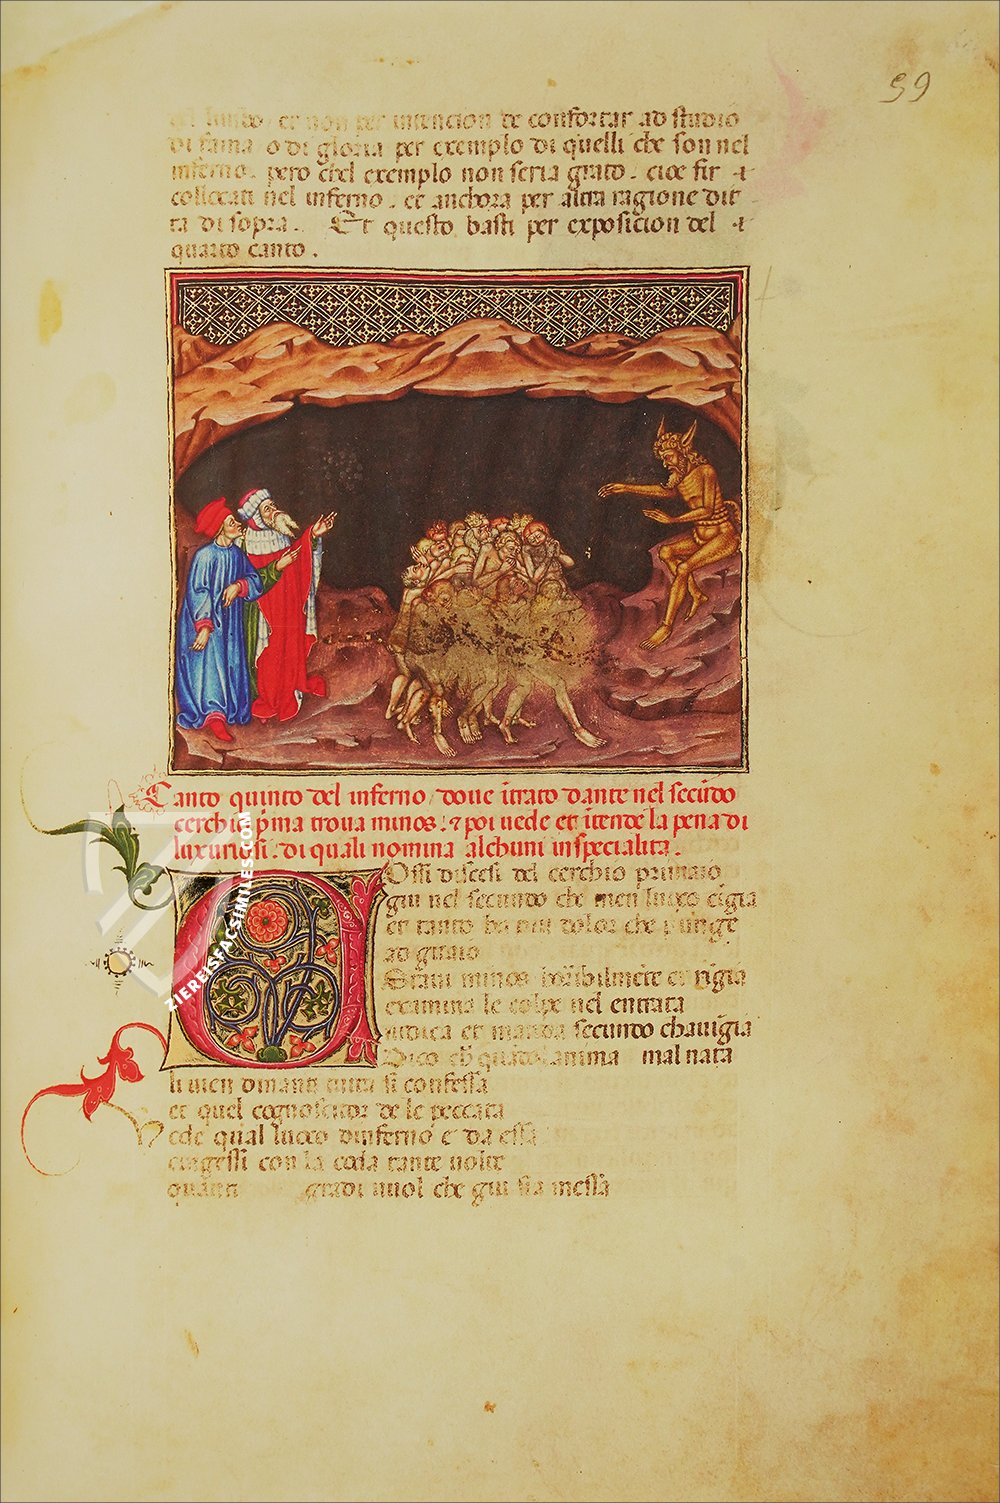 59
del limbo. et non per intencion de confortar ad studio
di fama o di gloria per exemplo di quelli che son nel
inferno. pero chel exemplo non seria grato. cioe fir
collocati nel inferno. et anchora per altra ragione dit
ta di sopra. Et questo basti per exposicion del
quarto canto.
Canto quinto del inferno / doue itrato dante nel secudo
cerchio pma troua minos. ⁊ poi uede et itende la pena di
luxuriosi. di quali nomina alchuni in specialita.
Cossi discesi del cerchio primaio
giu nel secundo che men luoco cigia
et tanto ha piu dolor che punge
ad guaio
Staui minos horibilmete et rigia
examina le colpe nel entrata
iudica et manda secundo chauigia
Dico ch quado lanima mal nata
li uien dinanti tutta si confessa
et quel cognoscitor de le peccata
uede qual luoco dinferno e da essa
cingessi con la coda tante uolte
quanti gradi uuol che giu sia messa
ZIEREISFACSIMILES.COM